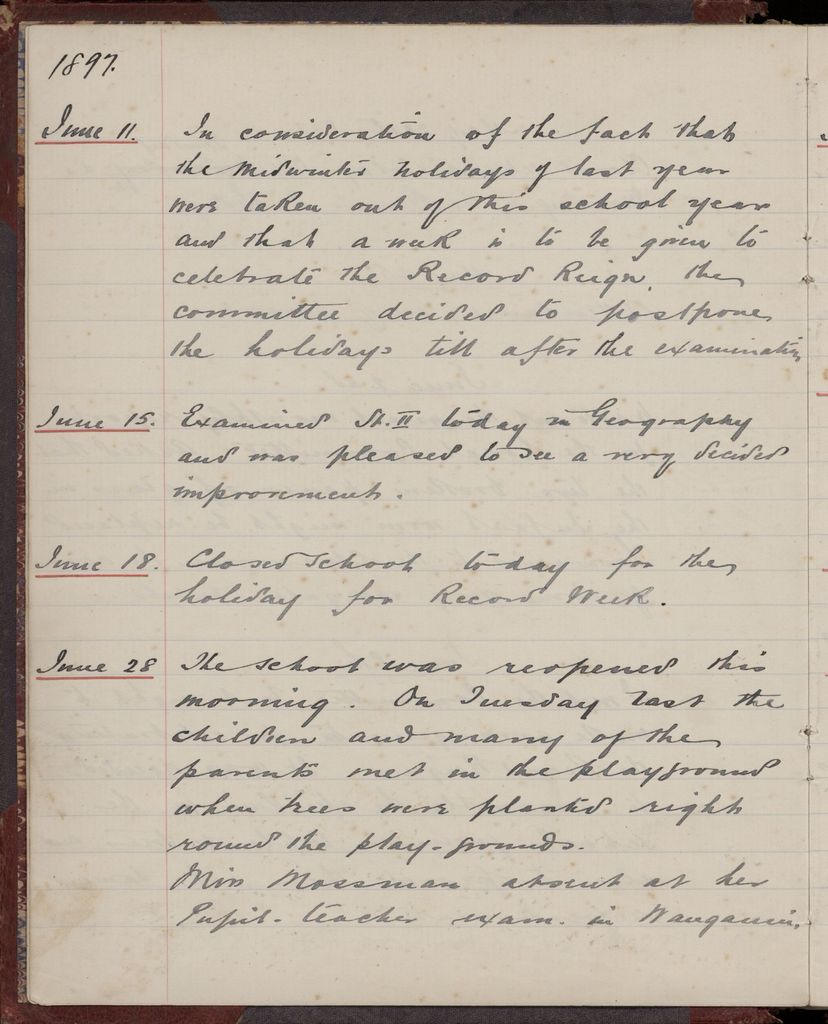 1897.
June 11. In consideration of the fact that
the Midwinter holidays of last year
were taken out of this school year
and that a week is to be given to
celebrate the Record Reign, the
committee decided to postpone
the holidays till after the examination
June 15. Examined St. II today in Geography
and was pleased to see a very decided
improvement.
June 18. Closed school today for the
holiday for Record Week.
June 28 The school was reopened this
morning. On Tuesday last the
children and many of the
parents met in the playground
when trees were planted right
round the play-grounds.
Miss Mossman absent at her
Pupil-teacher exam. in Wanganui.